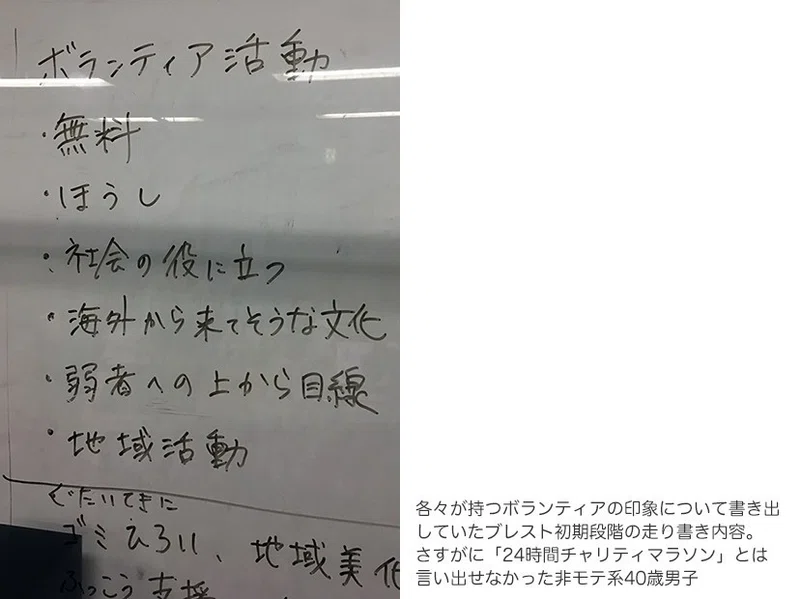 ボランティア活動
・無料
・ほうし
・社会の役に立つ
・海外から来てそうな文化
・弱者への上から目線
・地域活動
ぐたいてきに
ゴミひろい、地域美化
ふっこう支援
各々が持つボランティアの印象について書き出
していたブレスト初期段階の走り書き内容。
さすがに「24時間チャリティマラソン」とは
言い出せなかった非モテ系40歳男子